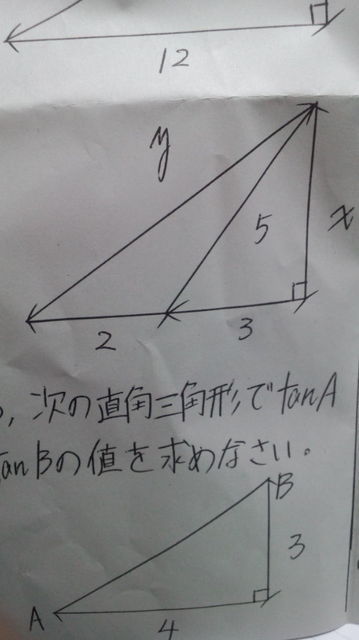 12
y
5
x
2
3
次の直角三角形でtanA
tanBの値を求めなさい。
B
3
A
4